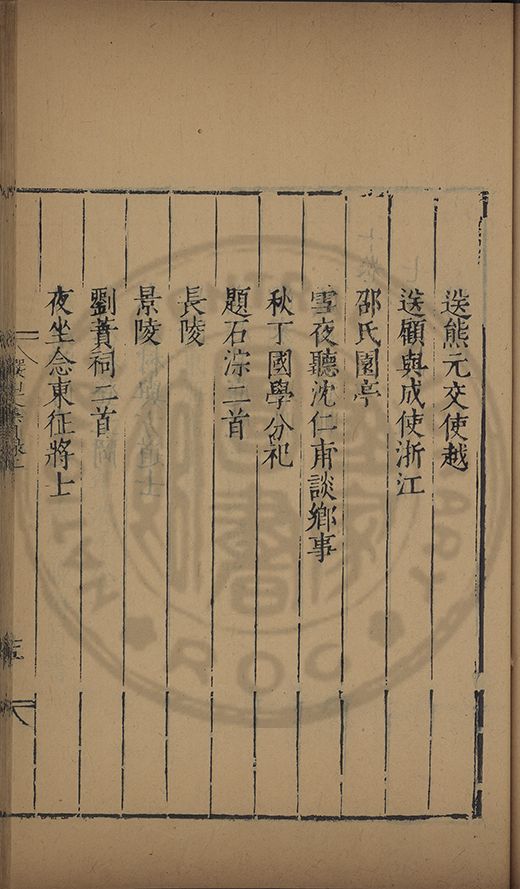 送熊元交使越
送顧與成使浙江
邵氏園亭
雪夜聽沈仁甫談鄉事
秋丁國學分祀
題石淙二首
長陵
景陵
劉蕡祠二首
夜坐念東征將士